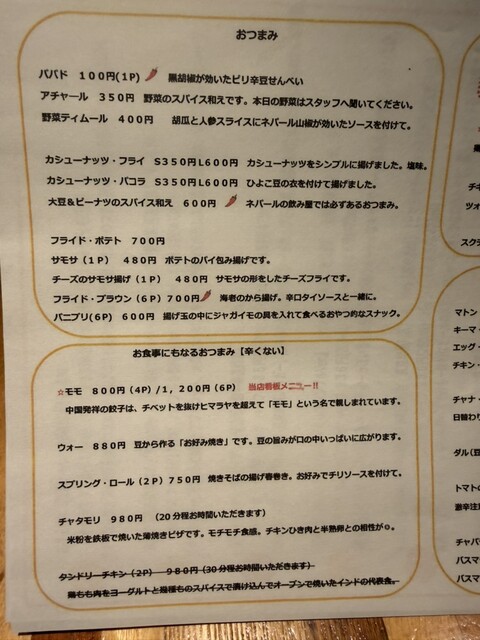 おつまみ
パパド 100円(1P) 黒胡椒が効いたピリ辛豆せんべい
アチャール 350円 野菜のスパイス和えです。本日の野菜はスタッフへ聞いてください。
野菜ティムール 400円 胡瓜と人参スライスにネパール山椒が効いたソースを付けて。
カシューナッツ・フライ S350円L600円 カシューナッツをシンプルに揚げました。塩味。
カシューナッツ・パコラ S350円L600円 ひよこ豆の衣を付けて揚げました。
大豆&ピーナツのスパイス和え 600円 ネパールの飲み屋では必ずあるおつまみ。
フライド・ポテト 700円
サモサ(1P) 480円 ポテトのパイ包み揚げです。
チーズのサモサ揚げ(1P) 480円 サモサの形をしたチーズフライです。
フライド・プラウン(6P)700円 海老のから揚げ。辛口タイソースと一緒に。
パニプリ(6P) 600円 揚げ玉の中にジャガイモの具を入れて食べるおやつ的なスナック。
お食事にもなるおつまみ【辛くない】
☆モモ 800円(4P)/1,200円(6P) 当店看板メニュー!!
中国発祥の餃子は、チベットを抜けヒマラヤを超えて「モモ」という名で親しまれています。
ウォー 880円 豆から作る「お好み焼き」です。豆の旨みが口の中いっぱいに広がります。
スプリング・ロール(2P)750円 焼きそばの揚げ春巻き。お好みでチリソースを付けて。
チャタモリ 980円 (20分程お時間いただきます)
米粉を鉄板で焼いた薄焼きピザです。モチモチ食感。チキンひき肉と半熟卵との相性が◎。
タンドリーチキン(2P) 980円(30分程お時間いただきます)
鶏もも肉をヨーグルトと幾種ものスパイスで漬け込んでオーブンで焼いたインドの代表食。
チキ
ツォ
スクラ
マトン
キーマ・
エッグ・
チキン・
チャナ・
日替わり
ダル(豆
トマトの
激辛注
チャパ
バスマ
バスマ